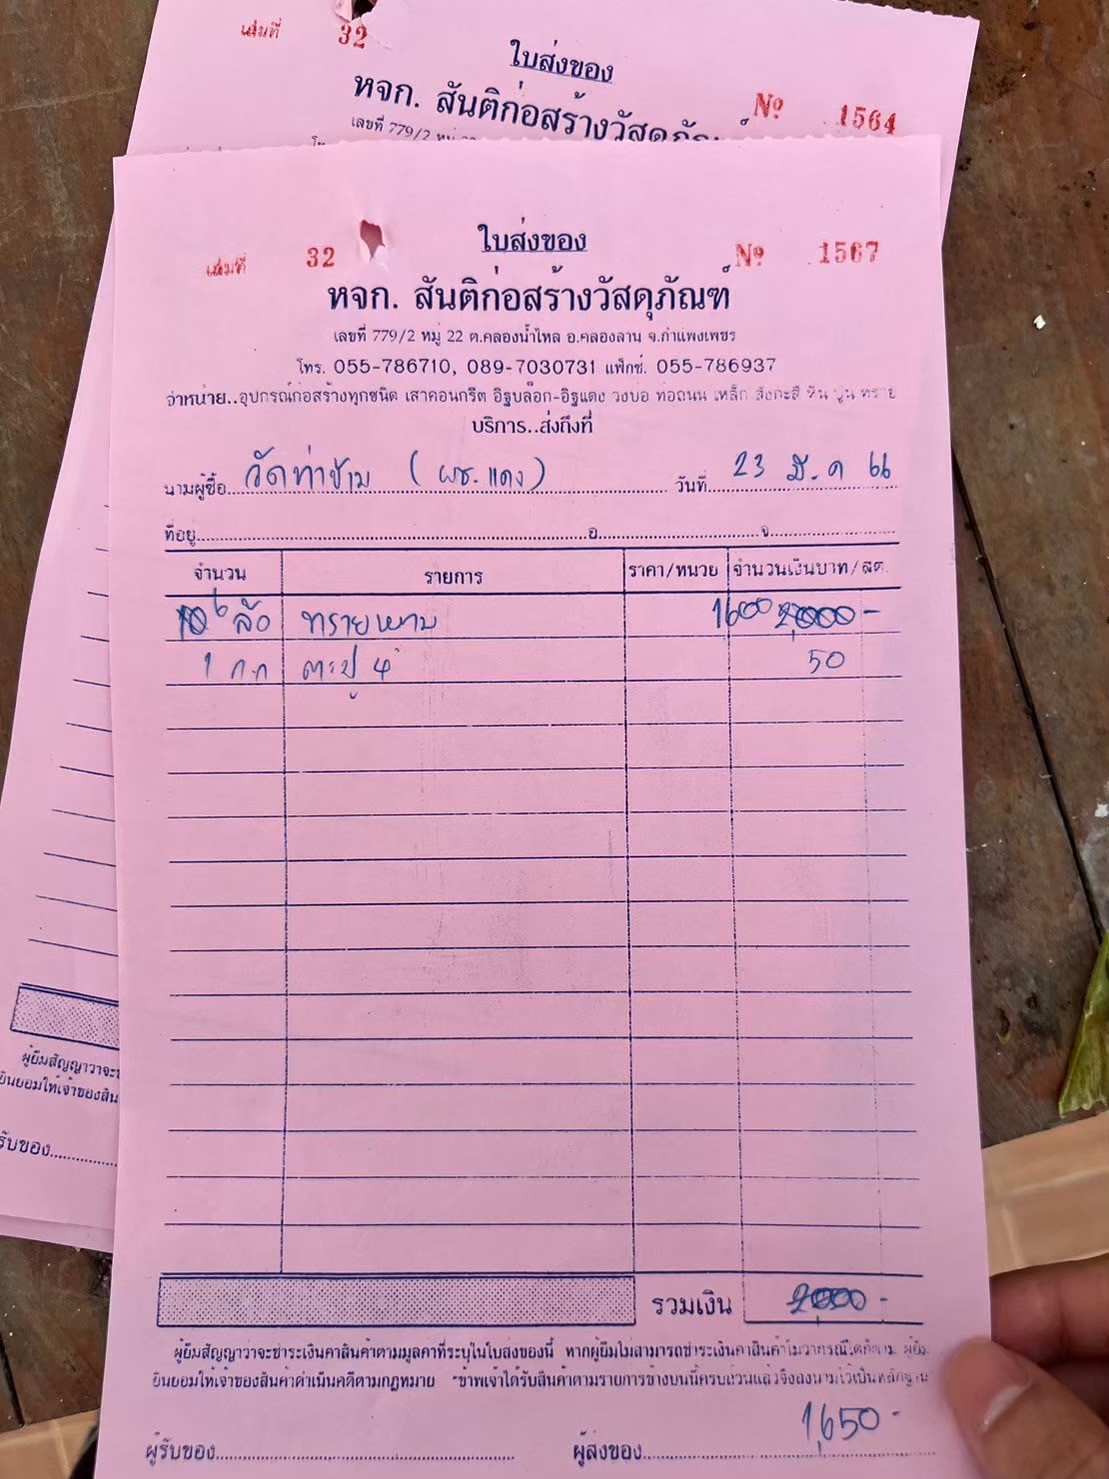 เล่มที่ 32
ใบส่งของ
หจก. สันติก่อสร้างวัสดุภัณฑ์
Nº 1564
เลขที่ 779/2 หมู่
ใบส่งของ
เล่มที่ 32 Nº 1567
หจก. สันติก่อสร้างวัสดุภัณฑ์
เลขที่ 779/2 หมู่ 22 ต.คลองน้ำไหล อ.คลองลาน จ.กำแพงเพชร
โทร. 055-786710, 089-7030731 แฟ็กซ์. 055-786937
จำหน่าย..อุปกรณ์ก่อสร้างทุกชนิด เสาคอนกรีต อิฐบล็อก-อิฐแดง วงบ่อ ท่อถนน เหล็ก สังกะสี หิน ปูน ทราย
บริการ..ส่งถึงที่
นามผู้ซื้อ วัดท่าข้าม (ผช. แดง) วันที่ 23 มี.ค 66
ที่อยู่ อ. จ.
จำนวน รายการ ราคา/หน่วย จำนวนเงินบาท/สต.
6 ล้อ ทรายหยาบ 1600 2,000 -
1 ก.ก ตะปู 4" 50
รวมเงิน 2,000 -
ผู้ยืมสัญญาว่าจะชำระเงินค่าสินค้าตามมูลค่าที่ระบุในใบส่งของนี้ หากผู้ยืมไม่สามารถชำระเงินค่าสินค้าไม่ว่ากรณีใดก็ตาม ผู้ยืม
ยินยอมให้เจ้าของสินค้าดำเนินคดีตามกฎหมาย "ข้าพเจ้าได้รับสินค้าตามรายการข้างบนนี้ครบถ้วนแล้วจึงลงนามไว้เป็นหลักฐาน
1,650 -
ผู้รับของ ผู้ส่งของ
ผู้ยืมสัญญาว่าจะ
ยินยอมให้เจ้าของสิน
รับของ